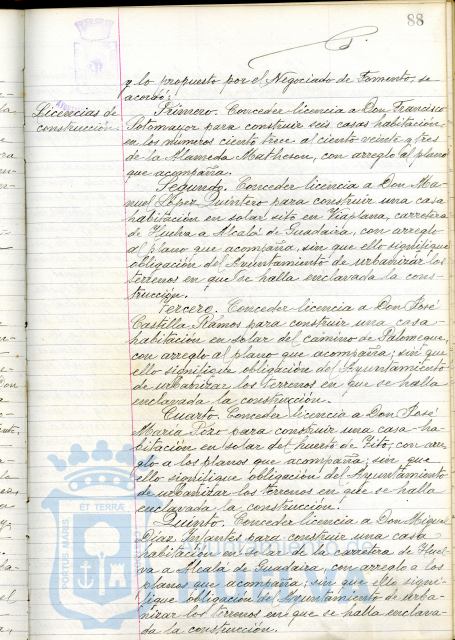 88
y lo propuesto por el Negociado de Fomento, se
acordó:
Licencias de
construcción.
Primero. Conceder licencia a Don Francisco
Sotomayor para construir seis casas habitación,
en los numeros ciento trece al ciento veinte y tres
de la Alameda Matheson, con arreglo al plano
que acompaña.
Segundo. Conceder licencia a Don Ma-
nuel López Quintero para construir una casa
habitación en solar sito en Viaplana, carretera
de Huelva a Alcalá de Guadaira, con arreglo
al plano que acompaña, sin que ello signifique
obligación del Ayuntamiento de urbanizar los
terrenos en que se halla enclavada la cons-
trucción.
Tercero. Conceder licencia a Don José
Castilla Ramos para construir una casa-
habitación en solar del camino de Palomeque,
con arreglo al plano que acompaña; sin que
ello signifique obligación del Ayuntamiento
de urbanizar los terrenos en que se halla
enclavada la construcción.
Cuarto. Conceder licencia a Don José
María Pozo para construir una casa-ha-
bitación en solar del huerto de Tito, con arre-
glo a los planos que acompaña; sin que
ello signifique obligación del Ayuntamiento
de urbanizar los terrenos en que se halla
enclavada la construcción.
Quinto. Conceder licencia a Don Miguel
Diaz Infantes para construir una casa
habitación en solar de la carretera de Huel-
va a Alcalá de Guadaira, con arreglo a los
planos que acompaña; sin que ello signi-
fique obligación del Ayuntamiento de urba-
nizar los terrenos en que se halla enclava-
da la construcción.
PORTUS MARIS ET TERRAE